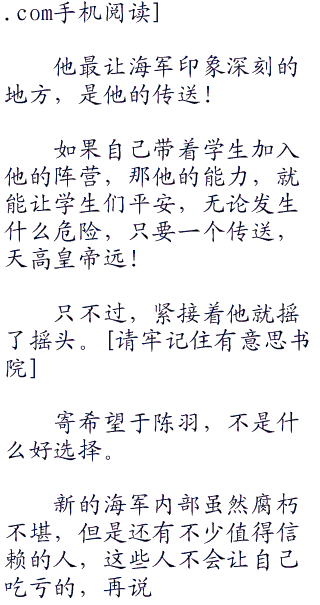 .com手机阅读]
他最让海军印象深刻的
地方，是他的传送！
如果自己带着学生加入
他的阵营，那他的能力，就
能让学生们平安，无论发生
什么危险，只要一个传送，
天高皇帝远！
只不过，紧接着他就摇
了摇头。[请牢记住有意思书
院]
寄希望于陈羽，不是什
么好选择。
新的海军内部虽然腐朽
不堪，但是还有不少值得信
赖的人，这些人不会让自己
吃亏的，再说